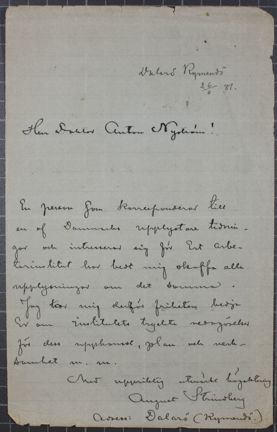 Dalarö Kymendö
26/6 81.
Herr Doktor Anton Nyström!
En person som korresponderar till
en af Danmarks upplystare tidnin-
gar och intresserar sig för Ert Arbe-
tarinstitut har bedt mig skaffa alla
upplysningar om det samma.
Jag tar mig derför friheten bedja
Er om institutets tryckta redogörelser
för dess uppkomst, plan och verk-
samhet m. m.
Med uppriktig utmärkt högaktning
August Strindberg
Adress: Dalarö (Kymendö.)